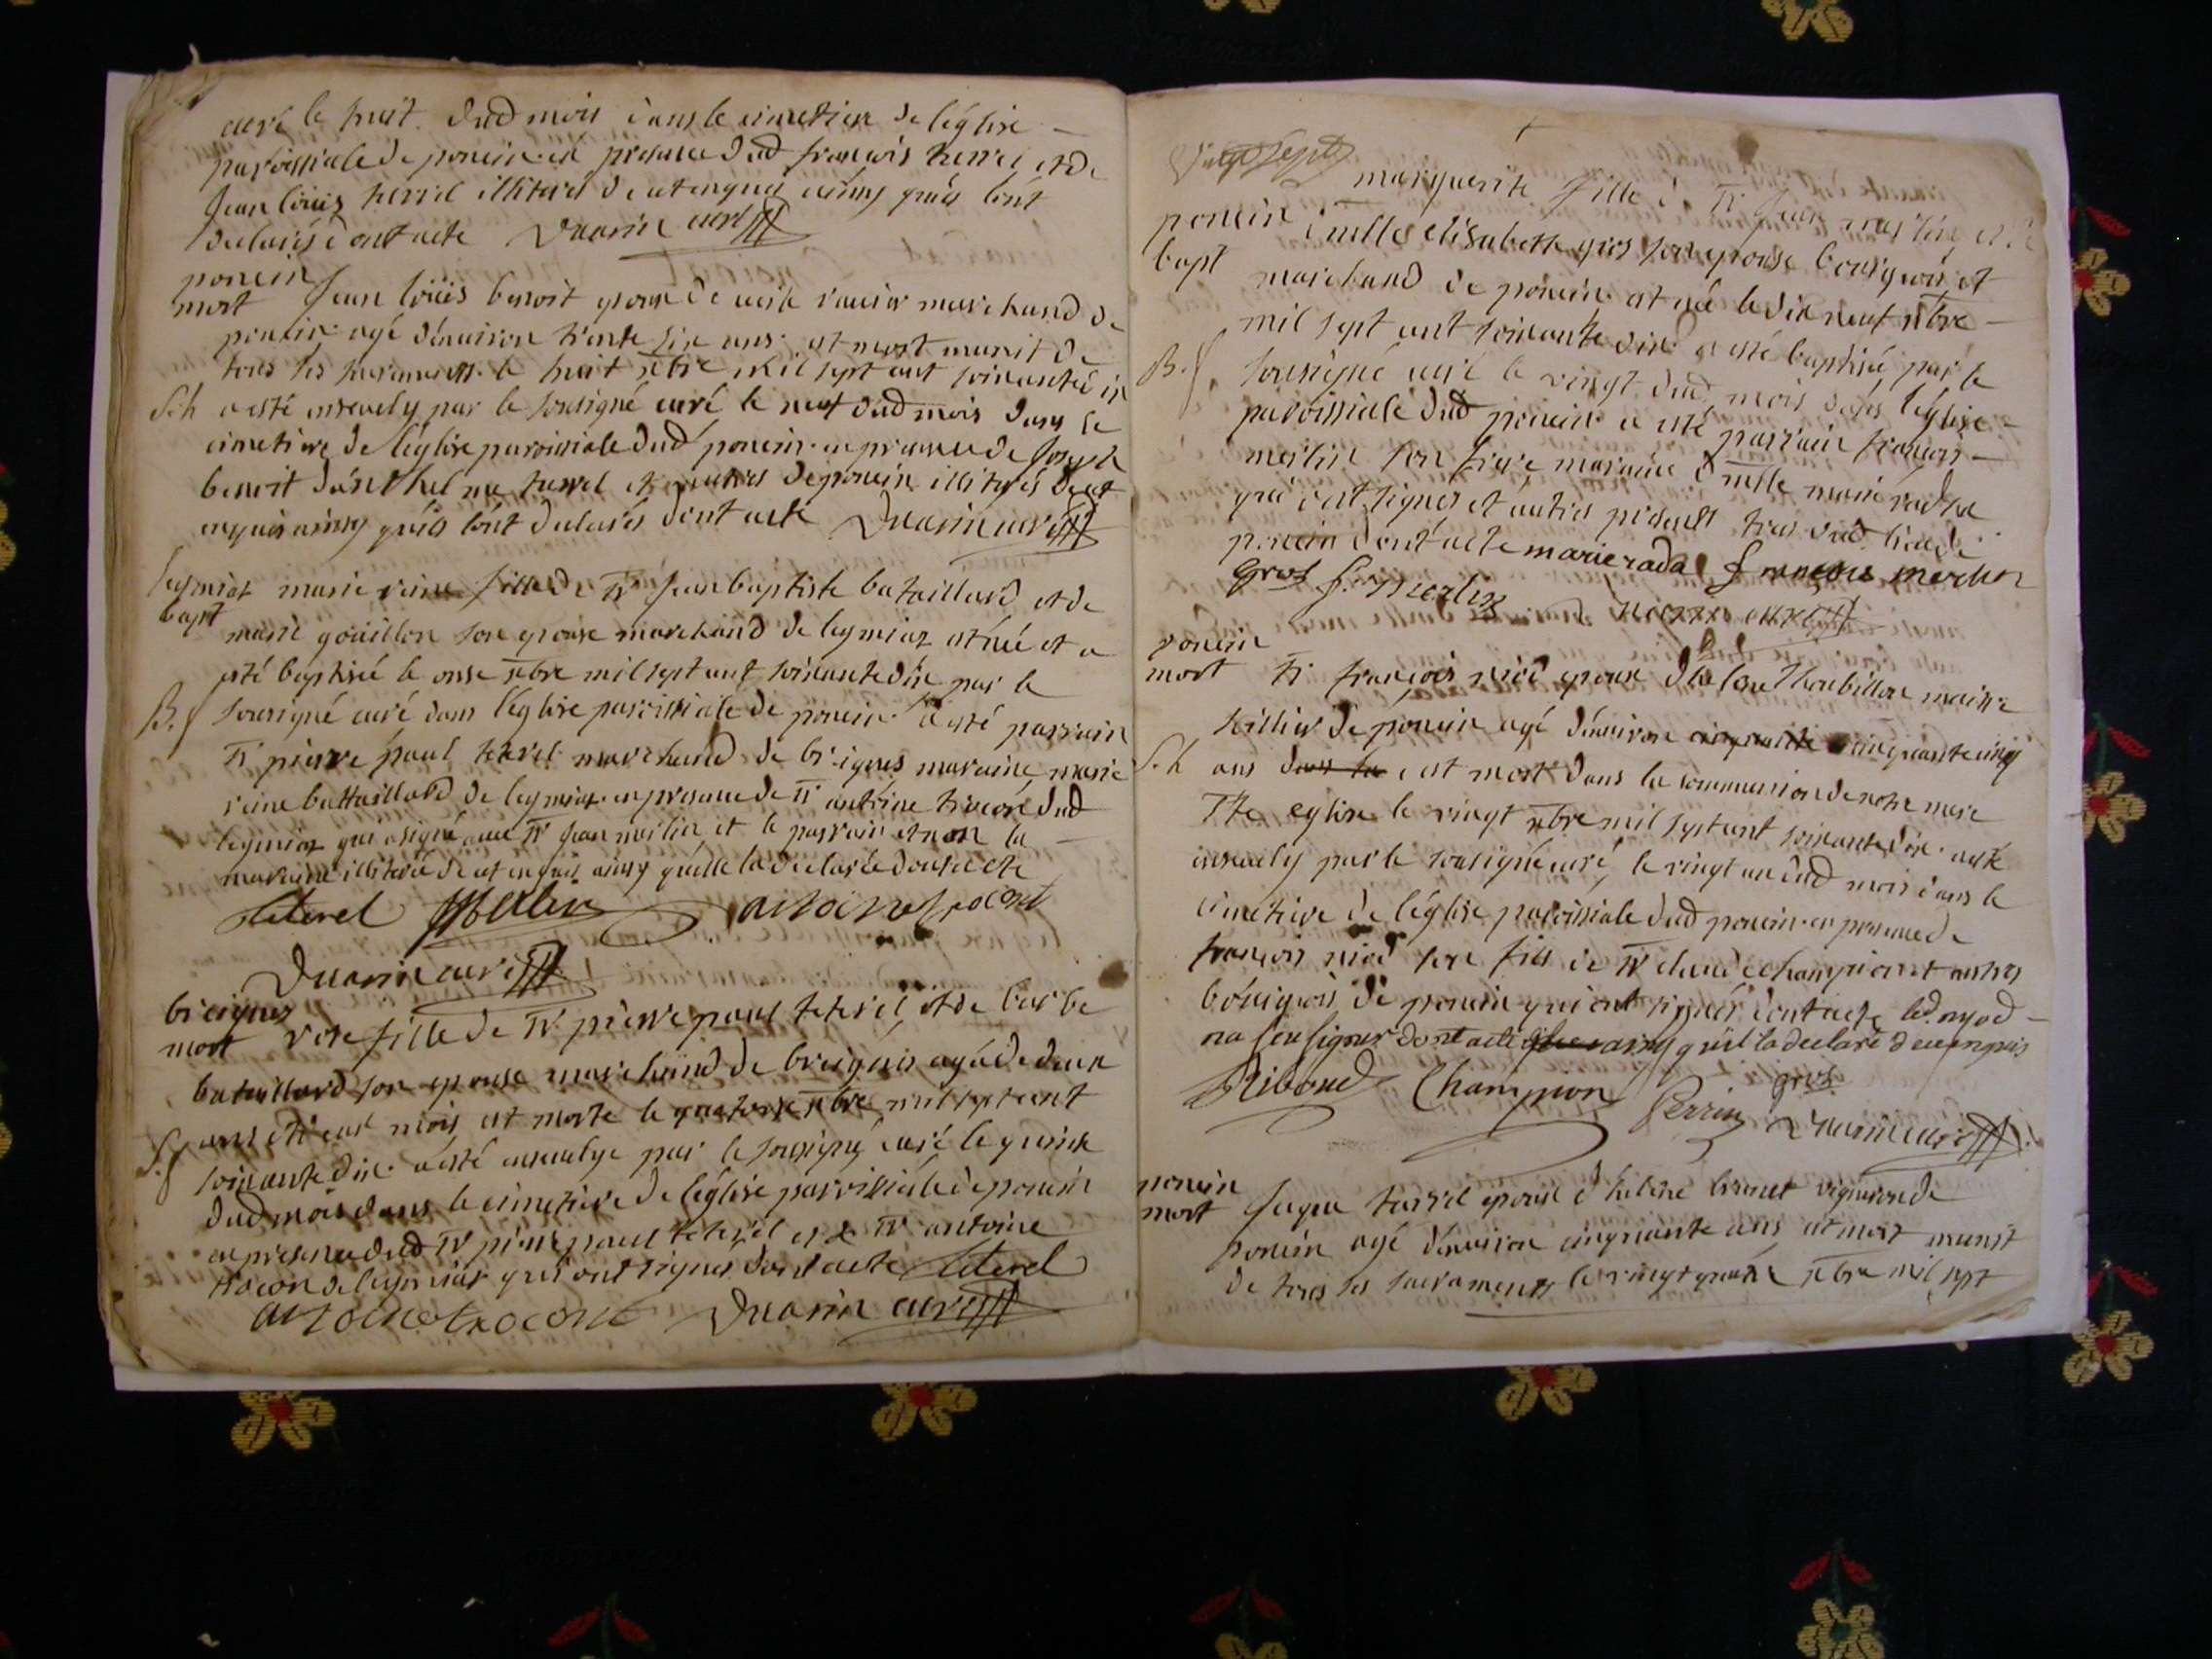 curé le huit dud mois dans le cimetiere de léglise
paroissiale de poncin en presence dud françois terrel et de
Jean loüis terrel illiterés de ce enquis ainsy quils lont
declarés dont acte Duarin curé
poncin
mort Jean loüis benoit epoux de marchand de
poncin agé dénuiron trente six ans est mort munit de
tous les sacrements le huit xbre mil sept cent soixante dix
Seh a esté enseuely par le sousigné curé le neuf dud mois dans le
cimetiere de léglise paroissiale dud poncin en presence de Joseph
benoit terrel et autres de poncin illiterés de ce
enquis ainsy quils lont declarés dont acte Duarin curé
leymiat marie reine fille de Sr Jean baptiste bataillard et de
bapt marie goüillon son epouse marchand de leymiaz est née et a
esté baptisée le onze xbre mil sept cent soixante dix par le
B. f sousigné curé dans léglise paroissiale de poncin a esté parrain
Sr pierre paul teterel marchand de breignes maraine marie
reine battaillard de leymiaz en presence de Sr antoine trocon dud
leymiaz qui a signé auec Sr Jean merlin et le parrain et non la
maraine illiterée de ce enquis ainsy quelle la declarée dont acte
teterel JMerlin antoine trocont
Duarin curé
breignes
mort rose fille de Sr pierre paul teterel et de barbe
bataillard son epouse marchand de breignes agée de deux
S. f ans et mois est morte le quatorze xbre mil sept cent
soixante dix a esté enseuelye par le sousigné curé le quinze
dud mois dans le cimetiere de léglise paroissiale de poncin
en presence dud Sr pierre paul teterel et de Sr antoine
trocon de leymiaz qui ont signes dont acte teterel
antoine trocont Duarin curé
vingt sept
marguerite fille à Sr Jean merlin et à
poncin dlle elisabeth gros son epouse bourgeois et
bapt marchand de poncin est née le dix neuf xbre
mil sept cent soixante dix a esté baptisée par le
B. f sousigné curé le vingt dud mois dans léglise
paroissiale dud poncin a esté parrain françois
merlin son frere maraine dlle marie radix
qui ont signes et autres presents tous dud lieu de
poncin dont acte marie rada françois merlin
gros J. Merlin Duarin curé
poncin
mort Sr françois niod epoux maitre
tellier de poncin agé dénuiron cinquante cinq
S. h ans est mort dans la communion de notre mere
Ste eglise le vingt xbre mil sept cent soixante dix a esté
enseuely par le sousigné curé le vingt un dud mois dans le
cimetiere de léglise paroissiale dud poncin en presence de
françois niod son fils de Sr claude champion et autres
bourgeois de poncin qui ont signés dont acte led. nyod
na seu signer dont acte quil la declaré de ce enquis
gros
Riboud Champion Perrin Duarin curé
poncin
mort Jaque terrel epoux d'helene brunet vigneron de
poncin agé dénuiron cinquante ans est mort munit
de tous les sacraments le vingt quatre xbre mil sept